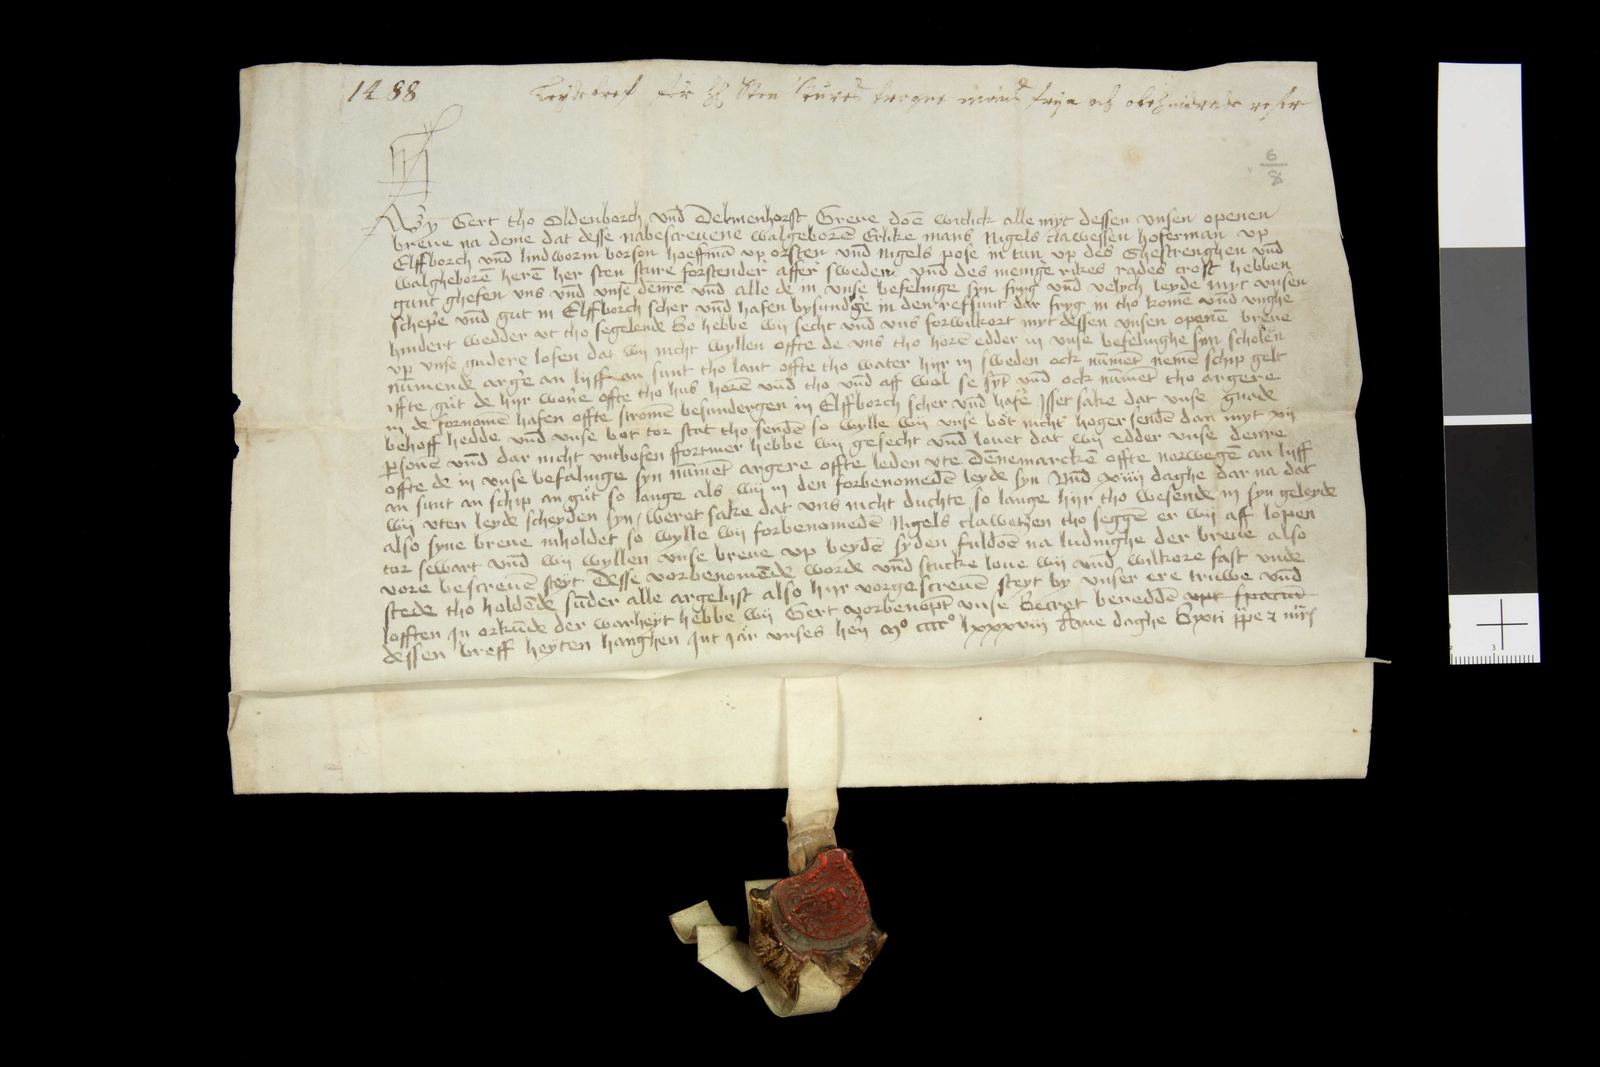 1488
6
8
Wy Gert tho Oldenborch vnd Delmenhorst Greve doen witlick alle myt dessen vnsen openen
breue na deme dat desse nabescreuene walgeboren Erlike mans Nigels clawessen hoferman vp
Elffborch vnd lindworm borson hoeffman vp orsten vnd Nigels pose in tun vp des Ghestrenghen vnd
walgheboren heren her sten sture forstender affer sweden vnd des meinge rikes rades crost hebben
gunt ghefen vns vnd vnse denre vnd alle de in vnse befelinge syn fryg vnd velych leyde myt vnsen
schepe vnd gut in Elffborch scher vnd hafen bysundge in den refsunt dar fryg in tho komen vnd vnghe
hindert wedder vt tho segelende So hebbe wy secht vnd vns forwilkort myt dessen vnsen openen breue
vp vnse gudere lofen dat wy nicht wyllen offte de vns tho horen edder in vnse befelinghe syn scholen
numende arge an lyff an sunt tho lant offte tho water hyr in sweden ock numet nemen schip gelt
iffte gut de hyr wone offte tho hus horen vnd tho vnd aff wol se syt vnd ock numet tho argere
in de fornomen hafen offte stromen besundergen in Elffborch scher vnd hafe Isset sake dat vnse gnade
behoff hedde vnd vnse bot tor stat tho senden so wylle wy vnse bot nicht hoger senden dan myt xij
persone vnd dar nicht vntbofen ffortmer hebbe wy gesecht vnd louet dat wy edder vnse denre
offte de in vnse befalinge syn numet argere offte leden vte Dennemarcken offte norwegen an lyff
an sunt an schip an gut so lange als wy in den forbenomeden leyde syn vnd xiiij daghe dar na dat
wy vten leyde scheyden syn / weret sake dat vns nicht duchte so lange hyr tho wesende in syn geleyde
also syne breue inholdet so wylle wy forbenomeden Nigels clawetzen tho seggen er wy aff lopen
tor sewart vnd wy wyllen vnse breue vp beyden syden fuldoen na ludinghe der breue also
vore bescreuen steyt Desse vorbenomede worde vnd stucke loue wy vnd wilkore fast vnde
stede tho holdende sunder alle argelyst also hyr vorgescreuen steyt by vnser ere truwe vnd
lofften In orkunde der warheyt hebbe wy Gert vorbenopt vnse Secret benedden
dessen breff heyten hanghen Int jar vnses hern Mo cccco lxxxviij daghe